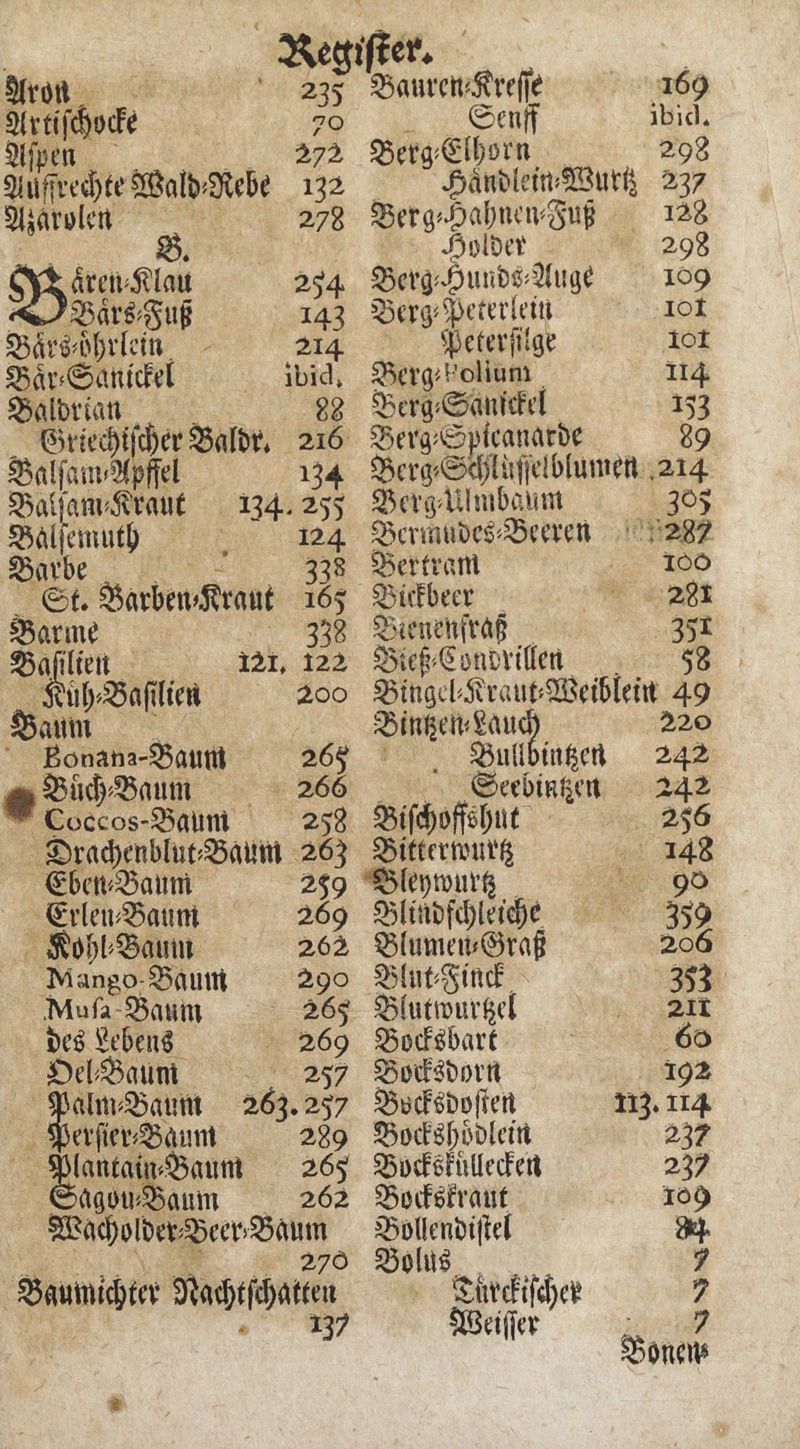 Register.
Aron 235
Artischocke 70
Aspen 272
Auffrechte Wald-Rebe 132
Azarolen 278
B.
Bären-Klau 254
Bärs-Fuß 143
Bärs-öhrlein 214
Bär-Sanickel ibid.
Baldrian 88
Griechischer Baldr. 216
Balsam-Apffel 134
Balsam-Kraut 134. 255
Balsemuth 124
Barbe 338
St. Barben-Kraut 165
Barme 338
Basilien 121. 122
Küh-Basilien 200
Baum
Bonana-Baum 265
Büch-Baum 266
Coccos-Baum 258
Drachenblut-Baum 263
Eben-Baum 259
Erlen-Baum 269
Kohl-Baum 262
Mango-Baum 290
Musa-Baum 265
des Lebens 269
Oel-Baum 257
Palm-Baum 263. 257
Persier-Baum 289
Plantain-Baum 265
Sagou-Baum 262
Wacholder-Beer-Baum
270
Baumichter Nachtschatten
137
Bauren-Kresse 169
Senff ibid.
Berg-Elhorn 298
Händlein-Wurtz 237
Berg-Hahnen-Fuß 128
Holder 298
Berg-Hunds-Auge 109
Berg-Peterlein 101
Petersilge 101
Berg-Polium 114
Berg-Sanickel 153
Berg-Spicanarde 89
Berg-Schlüsselblumen 214
Berg-Ulmbaum 305
Bermudes-Beeren 287
Bertram 100
Bickbeer 281
Bienenfraß 351
Bieß-Condrillen 58
Bingel-Kraut-Weiblein 49
Bintzen-Lauch 220
Bullbintzen 242
Seebintzen 242
Bischoffshut 256
Bitterwurtz 148
Bleywurtz 90
Blindschleiche 359
Blumen-Graß 206
Blut-Finck 353
Blutwurtzel 211
Bocksbart 60
Bocksdorn 192
Bocksdosten 113. 114
Bockshödlein 237
Bocksküllecken 237
Bockskraut 109
Bollendistel 84
Bolus 7
Türckischer 7
Weisser 7
Bonen-